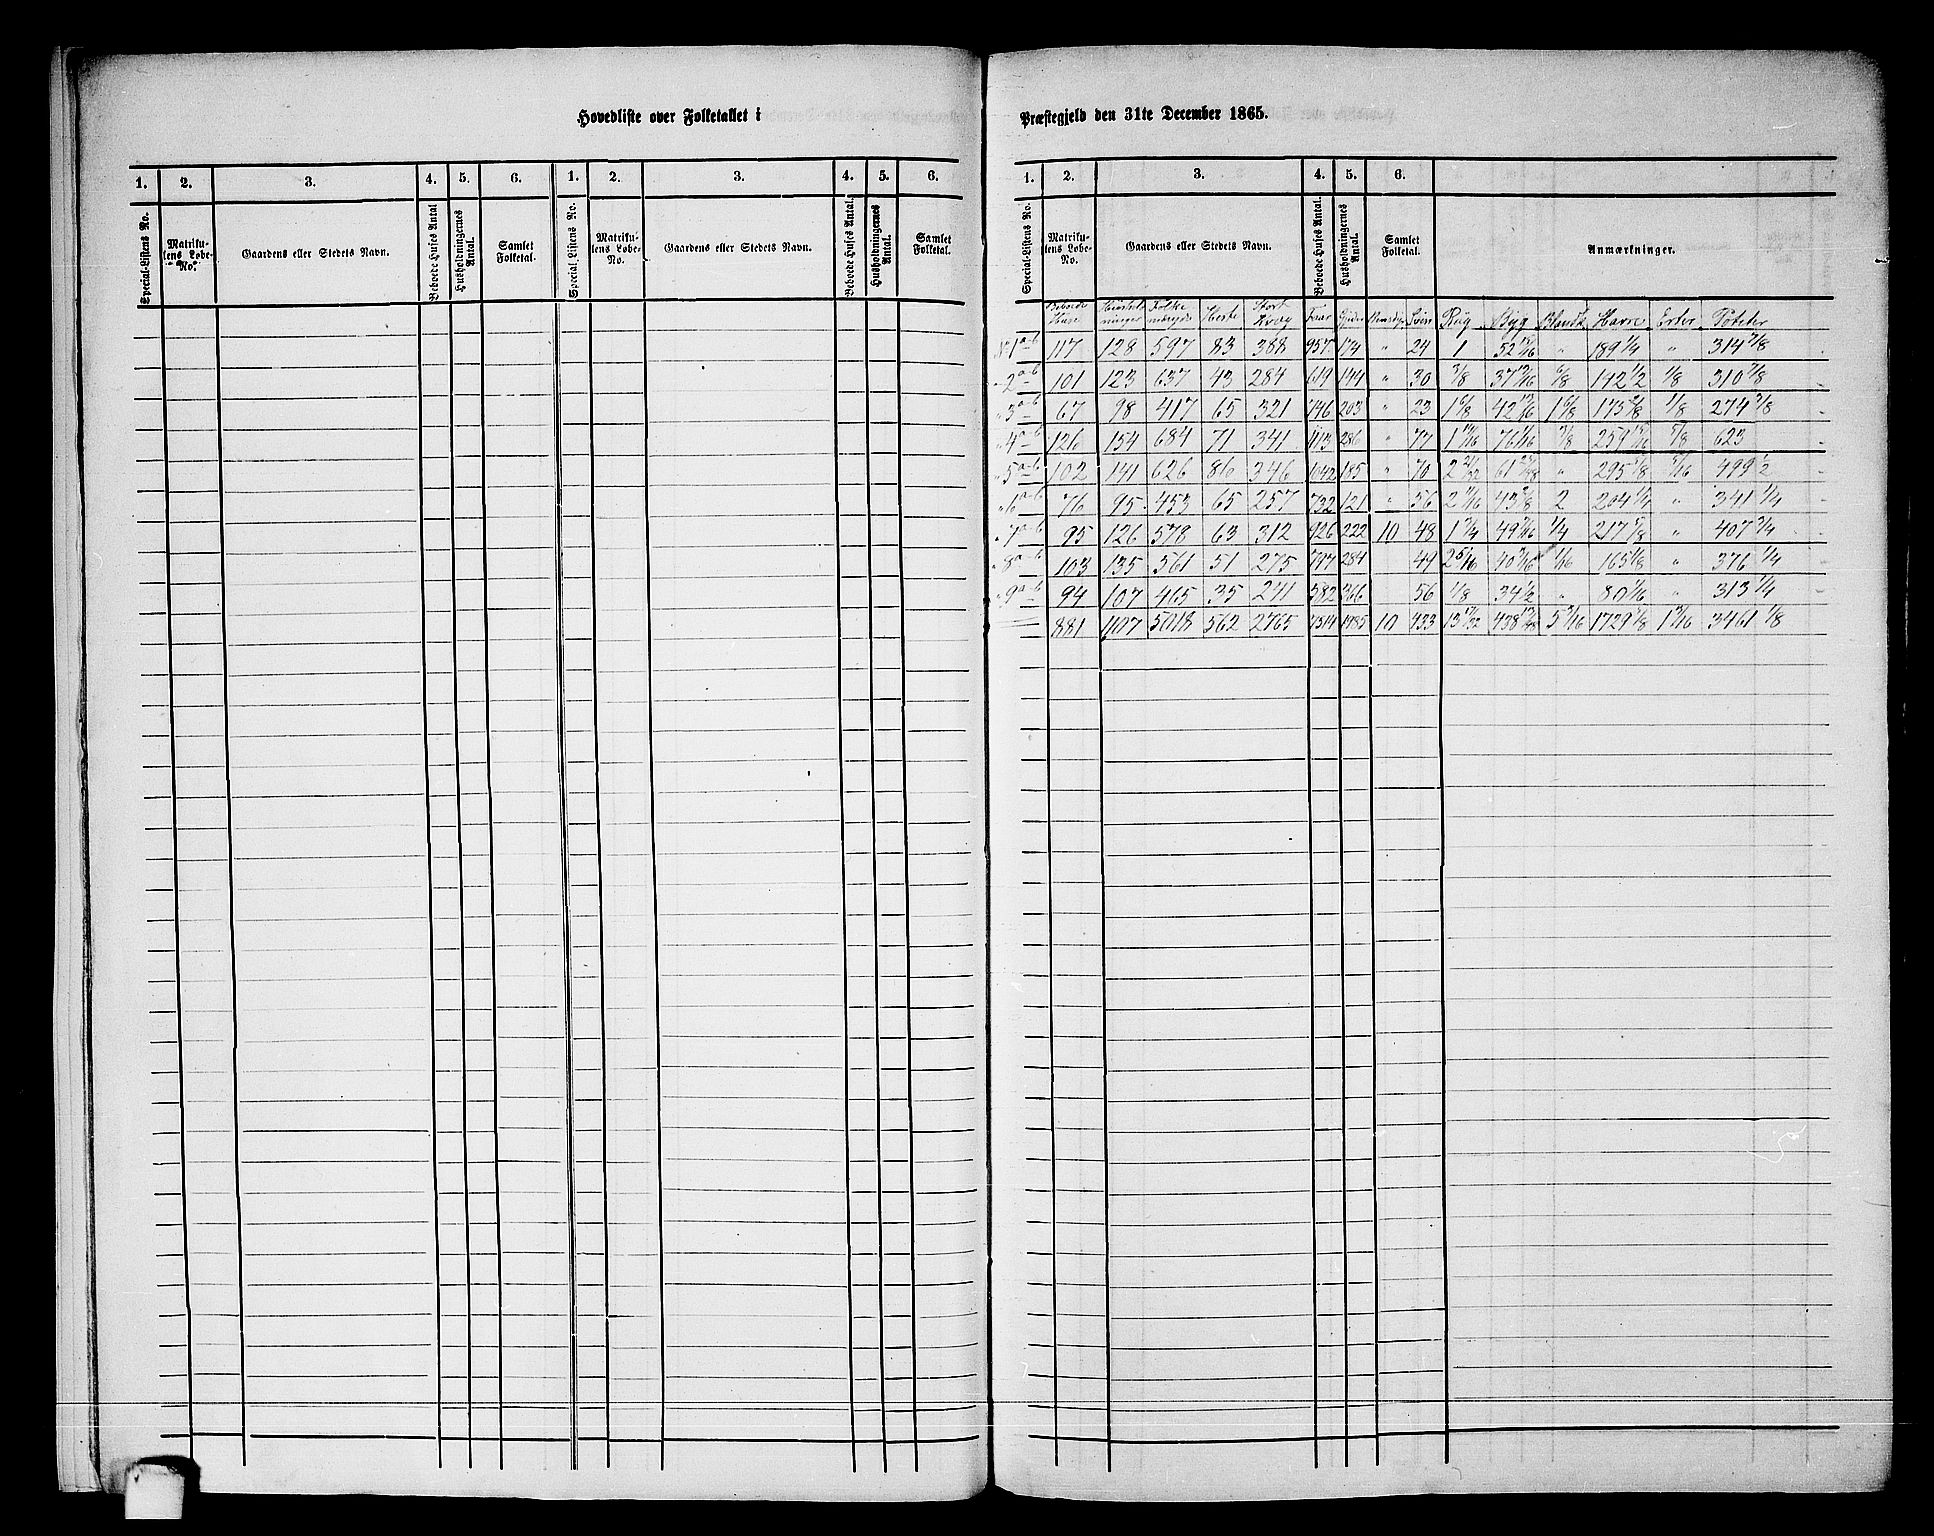 Hovedliste over Folketallet i
Præstegjeld den 31te December 1865.
1. 2. 3. 4. 5. 6. 1. 2. 3. 4. 5. 6.
Special-Listens No. Matrikulens Løbe-No. Gaardens eller Stedets Navn. Beboede Huses Antal Husholdningernes Antal. Samlet Folketal. Special-Listens No. Matrikulens Løbe-No. Gaardens eller Stedets Navn. Beboede Huses Antal. Husholdningernes Antal. Samlet Folketal.
1. 2. 3. 4. 5. 6.
Special-Listens No. Matrikulens Løbe-No. Gaardens eller Stedets Navn. Beboede Huses Antal. Husholdningernes Antal. Samlet Folketal. Anmærkninger.
Beboede Huse Folke Heste Stort Kvæg Faar Gjeder Svin Rug Byg Blandk Havre Erter Poteter
No 1 a-b 117 128 597 83 388 957 174 " 24 1 52 " 189 1/4 " 314 7/8
" 2 a-b 101 123 637 43 284 619 144 " 30 3/8 37 6/8 142 1/2 1/8 310 7/8
" 3 a-b 67 98 417 65 321 746 203 " 23 1 6/8 42 1 6/8 1/8 274 3/8
" 4 a-b 126 154 684 71 341 1113 286 " 77 1 76 1/16 259 5/8 623
" 5 a-b 102 141 626 86 346 1042 185 " 70 2 61 " 295 499 1/2
" 6 a-b 76 95 453 65 257 732 121 " 56 2 43 2 204 1/4 " 341 1/4
" 7 a-b 95 126 578 63 312 926 222 10 48 1 3/4 49 1/4 217 " 407 3/4
" 8 a-b 103 135 561 51 275 797 284 49 2 5/16 40 1/16 165 1/8 " 376 1/4
" 9 a-b 94 107 465 35 241 582 366 56 1/8 34 1/2 " 80 1/16 " 313 1/4
881 1107 5018 562 2765 7514 1985 10 433 13 17/32 438 5 3/16 1729 1/8 1 3461 1/8